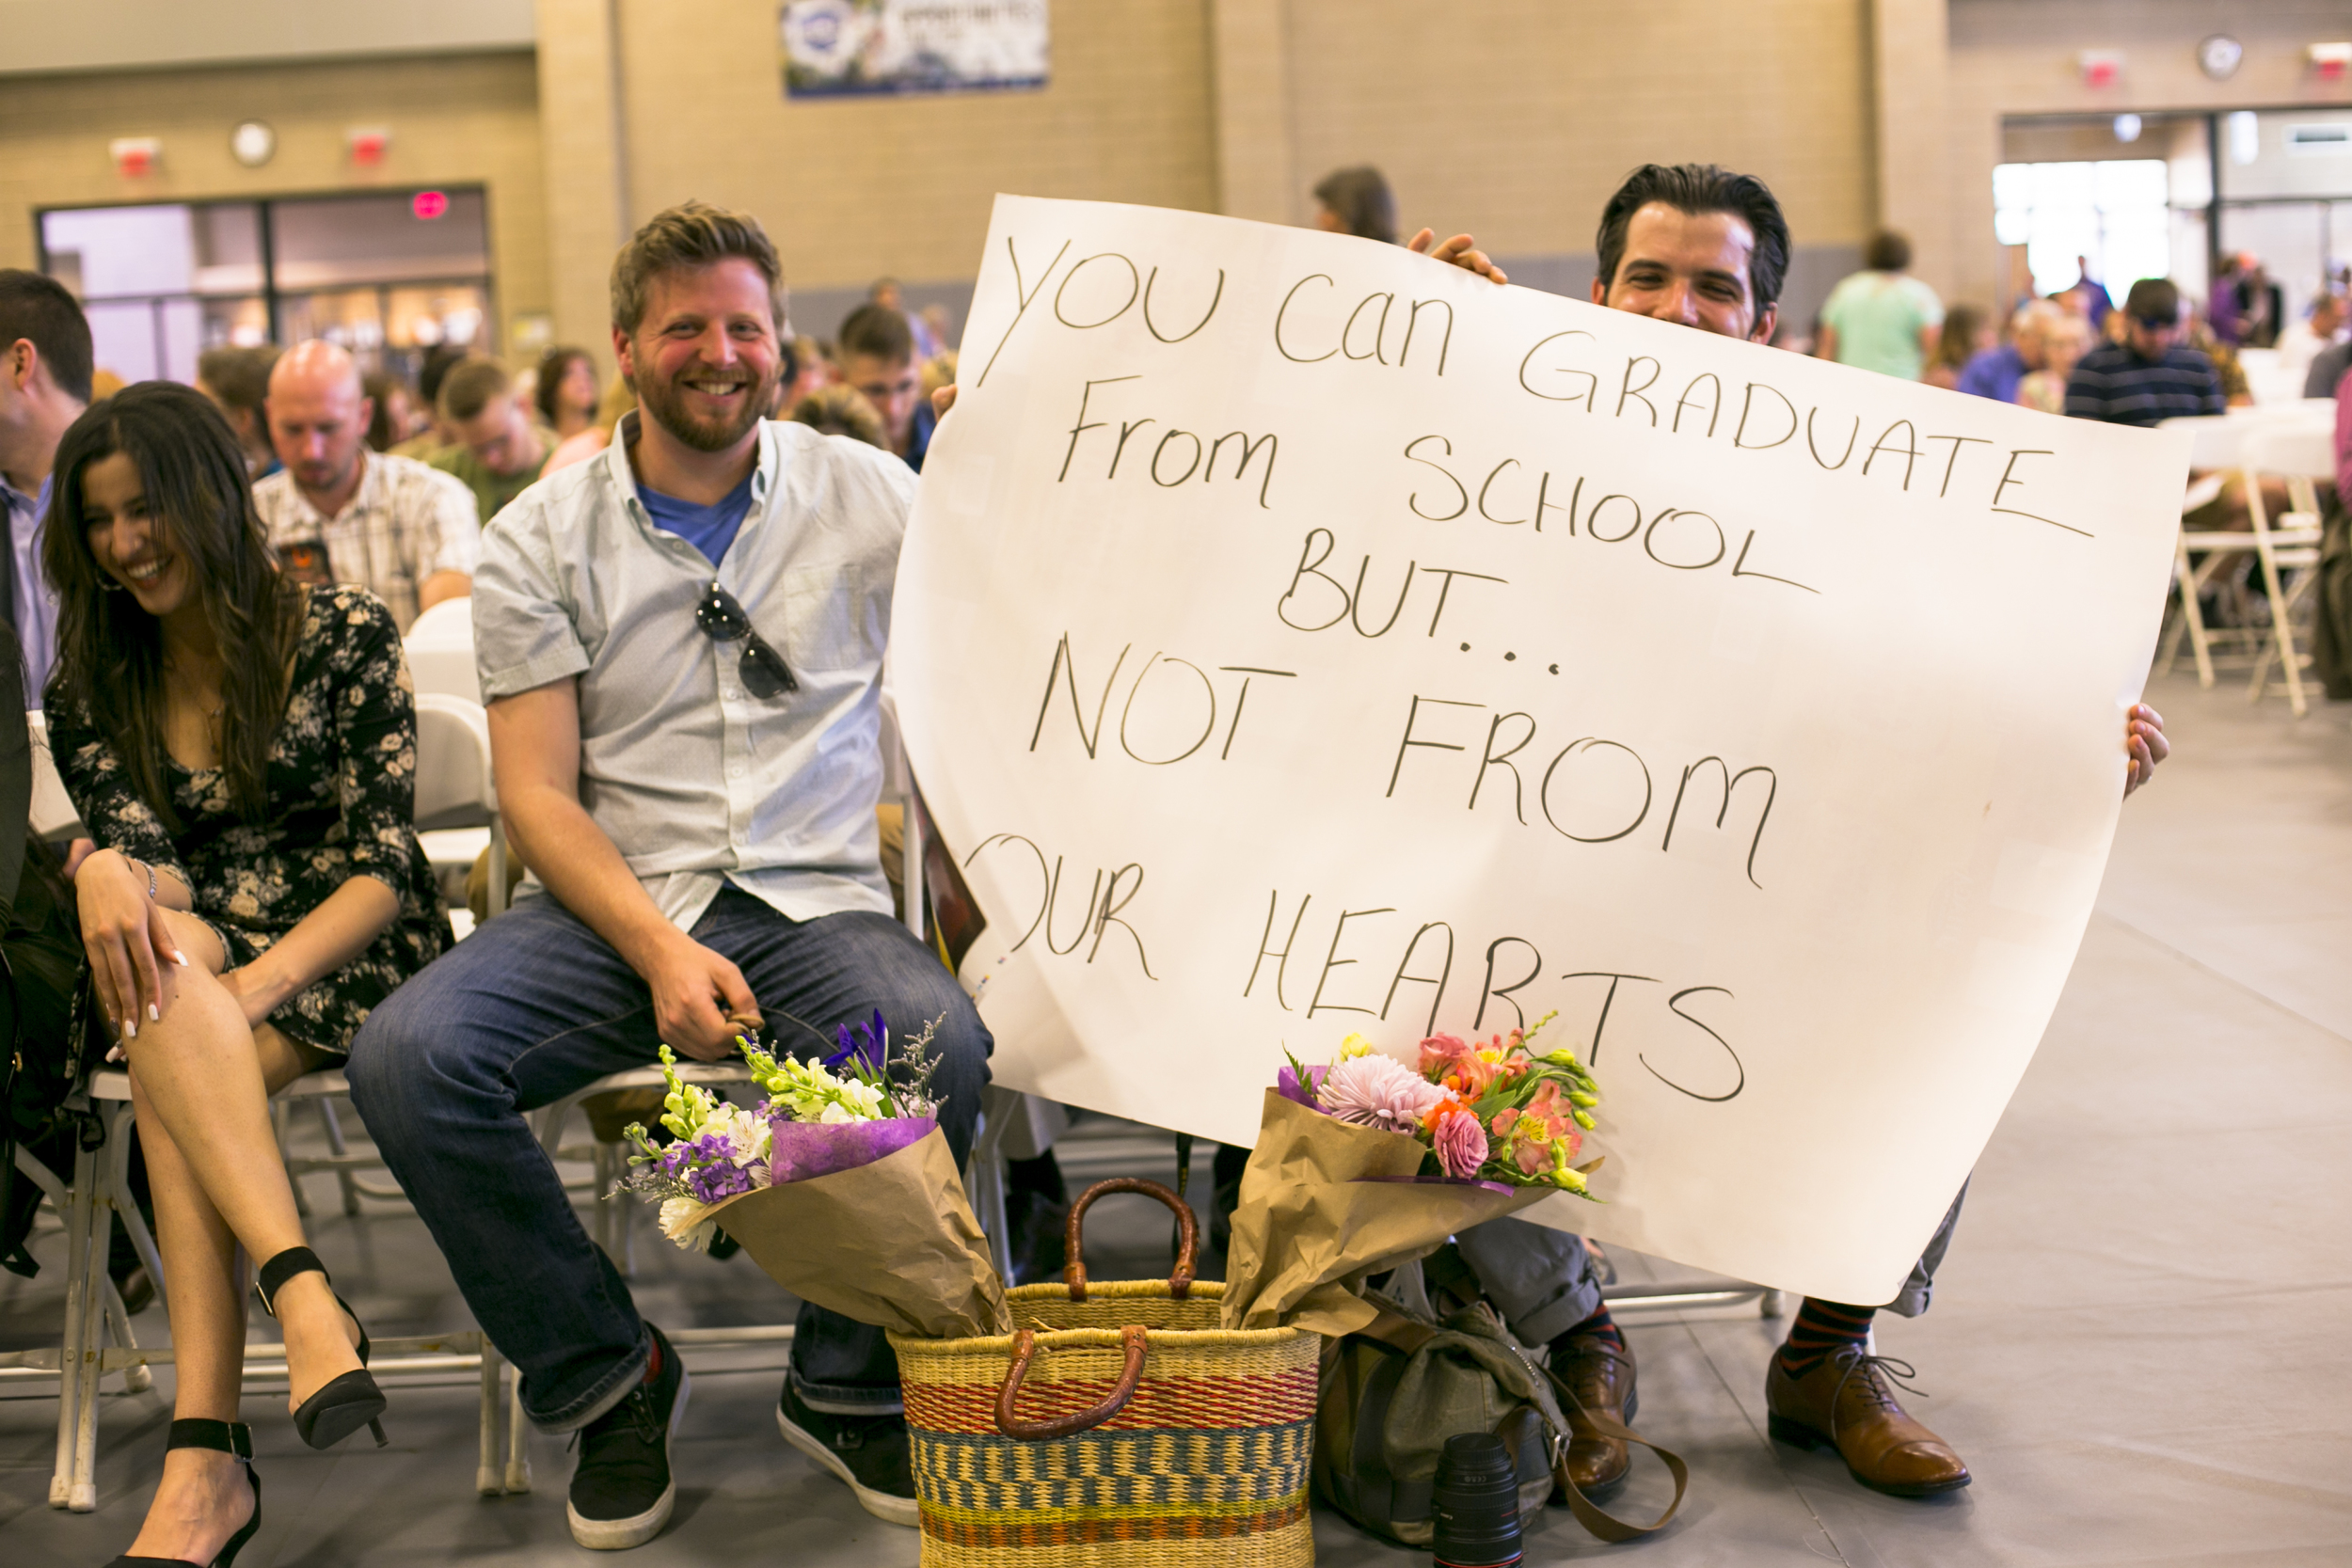 YOU Can GRADUATE
From SCHOOL
BUT...
NOT FROM
OUR HEARTS